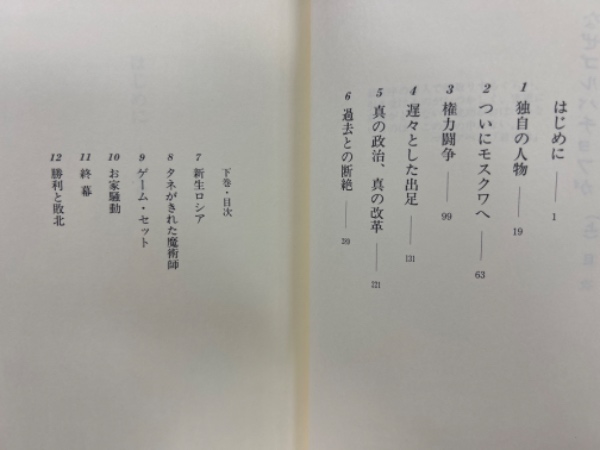 はじめに——1
1 独自の人物——19
2 ついにモスクワへ——63
3 権力闘争——99
4 遅々とした出足——131
5 真の政治、真の改革——
6 過去との断絶——
下巻・目次
7 新生ロシア
8 タネがきれた魔術師
9 ゲーム・セット
10 お家騒動
11 終幕
12 勝利と敗北